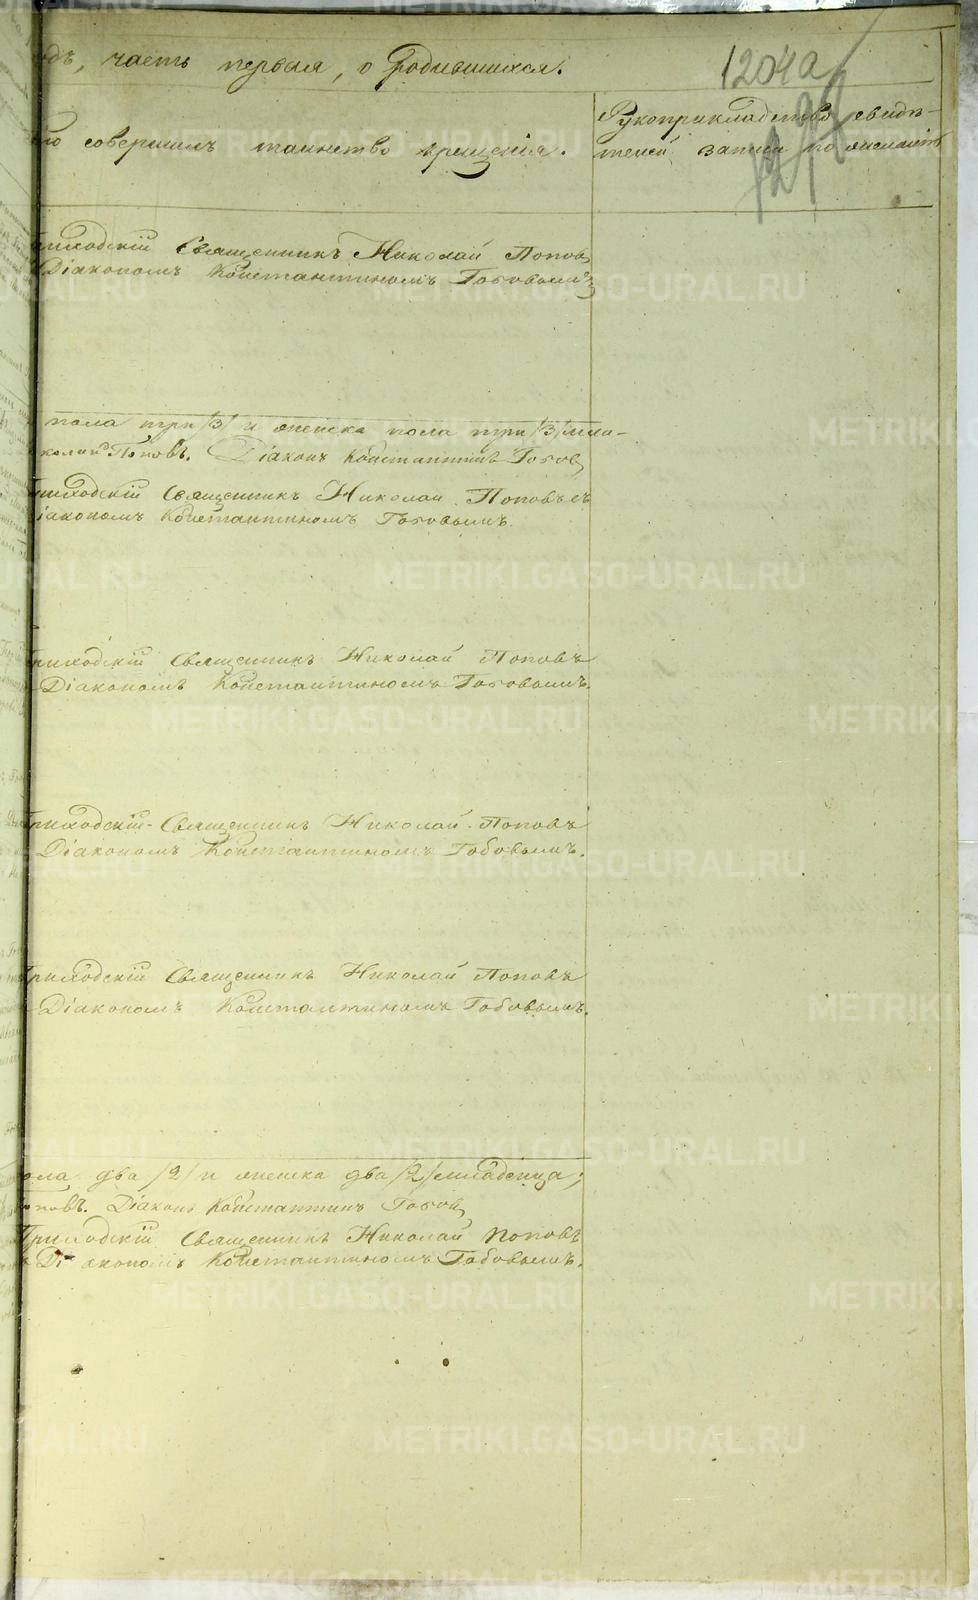 одъ, часть первая, о родившихся.
1204а
Рукоприкладство свидѣ-
то совершилъ таинство крещенія.
телей записи по желанію
приходскій Священникъ Николай Попов
Діакономъ Константиномъ Гобовымъ
пола три /3/ и женска пола три /3/ мла-
колай Поповъ. Діаконъ Константинъ Гобов
приходскій Священникъ Николай Поповъ съ
іакономъ Константиномъ Гобовымъ.
приходскій Священникъ Николай Поповъ
Діакономъ Константиномъ Гобовымъ.
приходскій Священникъ Николай Поповъ
Діакономъ Константиномъ Гобовымъ.
приходскій Священникъ Николай Поповъ
Діакономъ Константиномъ Гобовымъ.
ола два /2/ и женска два /2/ младенца;
оповъ. Діаконъ Константинъ Гобов
Приходскій Священникъ Николай Поповъ
Діакономъ Константиномъ Гобовымъ.
METRIKI.GASO-URAL.RU